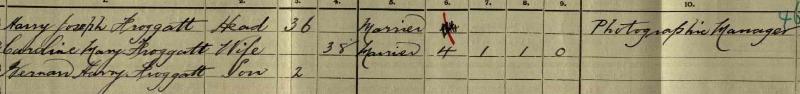 Harry Joseph Froggatt Head 36 Married Photographic Manager
Caroline Mary Froggatt Wife 38 Married 4 1 1 0
Harry Froggatt Son 2